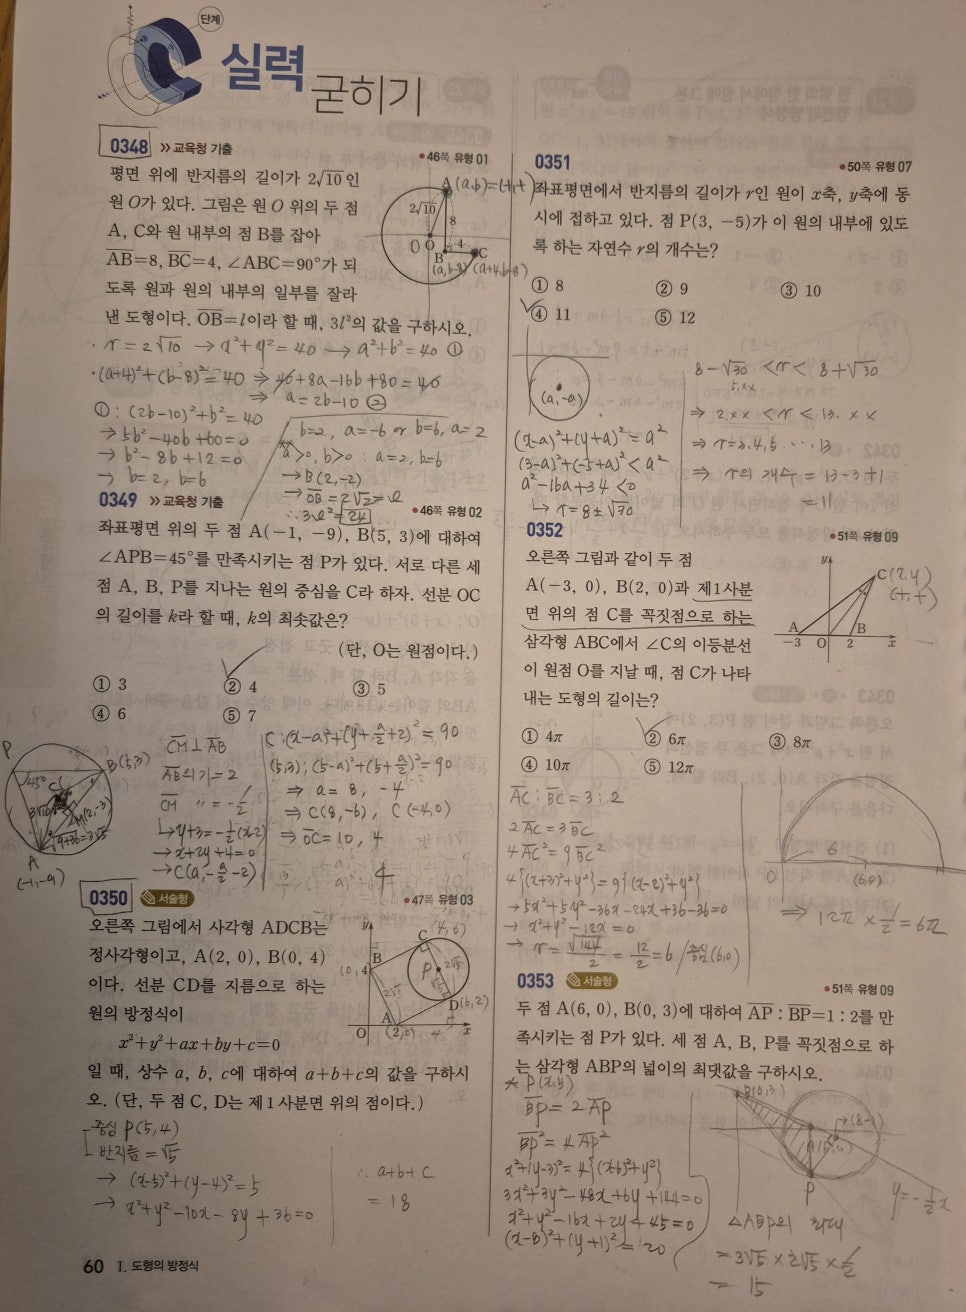 C 단계
실력
굳히기
0348 ≫교육청 기출
•46쪽 유형 01
평면 위에 반지름의 길이가 2√10인
원 O가 있다. 그림은 원 O 위의 두 점
A, C와 원 내부의 점 B를 잡아
AB=8, BC=4, ∠ABC=90°가 되
도록 원과 원의 내부의 일부를 잘라
낸 도형이다. OB=l이라 할 때, 3l²의 값을 구하시오.
A (a,b)=(+,+)
2√10
8
O O
4
B C
(a,b-8) (a+4,b-8)
· r=2√10 → x²+y²=40 → a²+b²=40 ①
· (a+4)²+(b-8)²=40 ⇒ 40+8a-16b+80=40
⇒ a=2b-10 ②
①: (2b-10)²+b²=40
→ 5b²-40b+60=0
→ b²-8b+12=0
→ b=2, b=6
b=2, a=-6 or b=6, a=2
a>0, b>0 : a=2, b=6
→ B(2,-2)
→ OB=2√2=l
∴ 3l²=24
0349 ≫교육청 기출
•46쪽 유형 02
좌표평면 위의 두 점 A(-1, -9), B(5, 3)에 대하여
∠APB=45°를 만족시키는 점 P가 있다. 서로 다른 세
점 A, B, P를 지나는 원의 중심을 C라 하자. 선분 OC
의 길이를 k라 할 때, k의 최솟값은?
(단, O는 원점이다.)
① 3 ② 4 ③ 5
④ 6 ⑤ 7
P
45°
C
B(5,3)
3√10
M(2,-3)
√9+36=3√5
A
(-1,-9)
CM⊥AB
AB의 기=2
CM 〃 =-1/2
↳ y+3=-1/2(x-2)
→ x+2y+4=0
→ C(a,-a/2-2)
C:(x-a)²+(y+a/2+2)²=90
(5,3):(5-a)²+(5+a/2)²=90
⇒ a=8, -4
⇒ C(8,-6), C(-4,0)
⇒ OC=10, 4
∴ 4
0350 서술형
•47쪽 유형 03
오른쪽 그림에서 사각형 ADCB는
정사각형이고, A(2, 0), B(0, 4)
이다. 선분 CD를 지름으로 하는
원의 방정식이
x²+y²+ax+by+c=0
일 때, 상수 a, b, c에 대하여 a+b+c의 값을 구하시
오. (단, 두 점 C, D는 제1사분면 위의 점이다.)
y
(4,6)
C
B
(0,4)
P
2√5
√5
2√5
D(6,2)
A
O (2,0) 4 x
중심 P(5,4)
반지름=√5
→ (x-5)²+(y-4)²=5
→ x²+y²-10x-8y+36=0
∴ a+b+c
= 18
60 Ⅰ. 도형의 방정식
0351
•50쪽 유형 07
좌표평면에서 반지름의 길이가 r인 원이 x축, y축에 동
시에 접하고 있다. 점 P(3, -5)가 이 원의 내부에 있도
록 하는 자연수 r의 개수는?
① 8 ② 9 ③ 10
④ 11 ⑤ 12
(a,-a)
(x-a)²+(y+a)²=a²
(3-a)²+(-5+a)²<a²
a²-16a+34<0
↳ r=8±√30
8-√30 <r< 8+√30
5.xx
⇒ 2.xx <r< 13.xx
⇒ r=3,4,5 ⋯ 13
⇒ r의 개수 = 13-3+1
= 11
0352
•51쪽 유형 09
오른쪽 그림과 같이 두 점
A(-3, 0), B(2, 0)과 제1사분
면 위의 점 C를 꼭짓점으로 하는
삼각형 ABC에서 ∠C의 이등분선
이 원점 O를 지날 때, 점 C가 나타
내는 도형의 길이는?
y
C(x,y)
(+,+)
A B
-3 O 2 x
① 4π ② 6π ③ 8π
④ 10π ⑤ 12π
AC:BC=3:2
2AC=3BC
4AC²=9BC²
4{(x+3)²+y²}=9{(x-2)²+y²}
→ 5x²+5y²-36x-24x+36-36=0
→ x²+y²-12x=0
→ r=√144/2=12/2=6 / 중심(6,0)
6
O (6,0)
⇒ 12π×1/2=6π
0353 서술형
•51쪽 유형 09
두 점 A(6, 0), B(0, 3)에 대하여 AP : BP=1 : 2를 만
족시키는 점 P가 있다. 세 점 A, B, P를 꼭짓점으로 하
는 삼각형 ABP의 넓이의 최댓값을 구하시오.
* P(x,y)
BP=2AP
BP²=4AP²
x²+(y-3)²=4{(x-6)²+y²}
3x²+3y²-48x+6y+144=0
x²+y²-16x+2y+45=0
(x-8)²+(y+1)²=20
B(0,3)
(8,-1)
A(6,0)
P
y=-1/2x
△ABP의 최대
=3√5×2√5×1/2
= 15